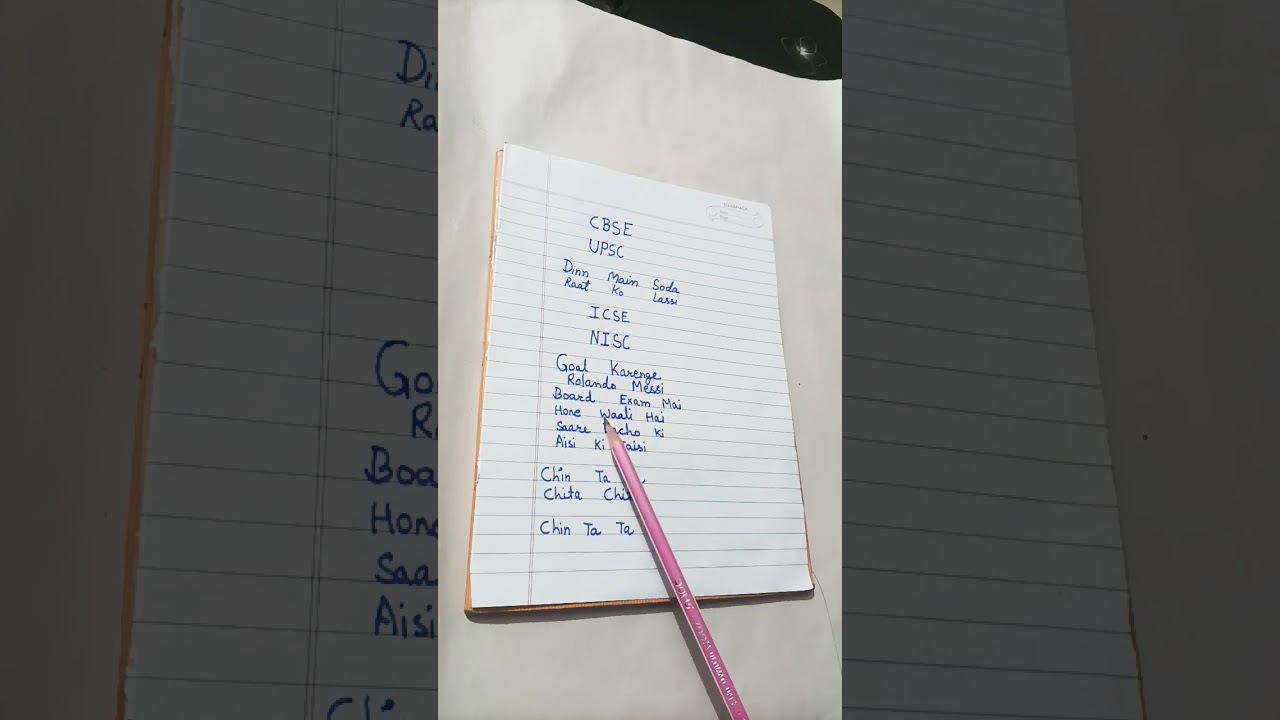 CBSE
UPSC
Dinn Main Soda
Raat Ko Lassi
ICSE
NISC
Goal Karenge
Rolando Messi
Board Exam Mai
Hone Waali Hai
Saare Ki
Aisi Ki Taisi
Chin Ta
Chita
Chin Ta Ta